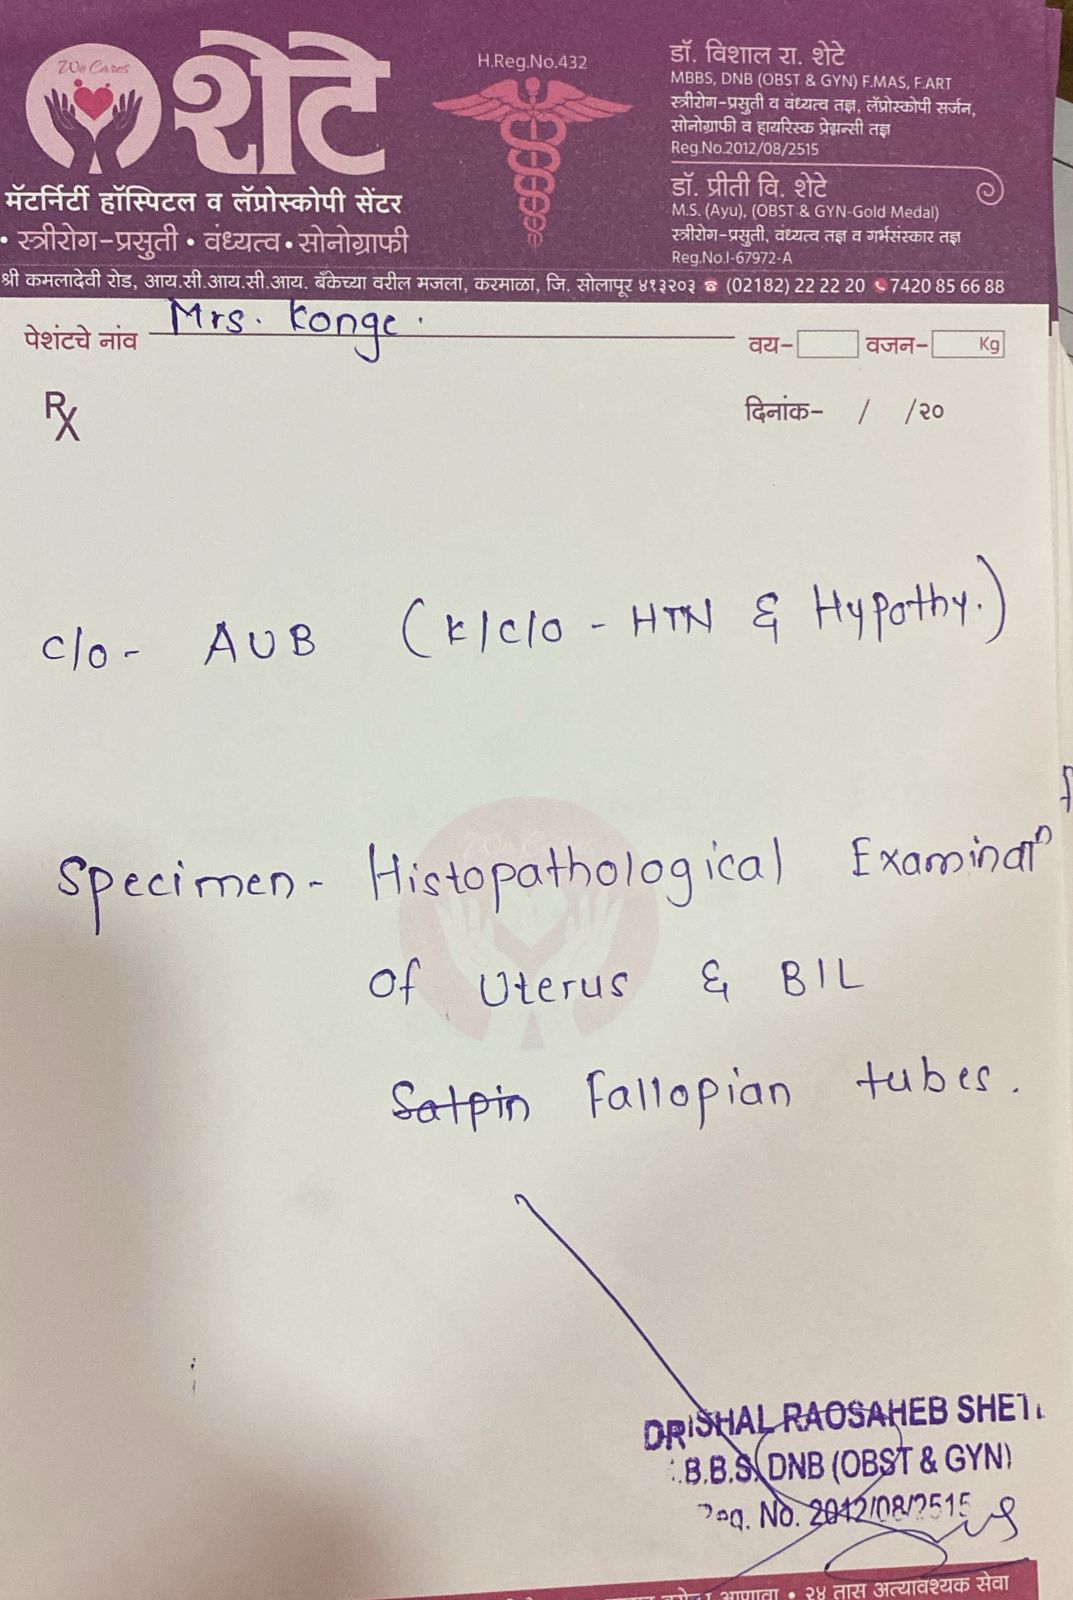 We Cares
शेटे
मॅटर्निटी हॉस्पिटल व लॅप्रोस्कोपी सेंटर
• स्त्रीरोग-प्रसुती • वंध्यत्व • सोनोग्राफी
H.Reg.No.432
डॉ. विशाल रा. शेटे
MBBS, DNB (OBST & GYN) F.MAS, F.ART
स्त्रीरोग-प्रसुती व वंध्यत्व तज्ञ, लॅप्रोस्कोपी सर्जन,
सोनोग्राफी व हायरिस्क प्रेग्नन्सी तज्ञ
Reg.No.2012/08/2515
डॉ. प्रीती वि. शेटे
M.S. (Ayu), (OBST & GYN-Gold Medal)
स्त्रीरोग-प्रसुती, वंध्यत्व तज्ञ व गर्भसंस्कार तज्ञ
Reg.No.I-67972-A
श्री कमलादेवी रोड, आय.सी.आय.सी.आय. बँकेच्या वरील मजला, करमाळा, जि. सोलापूर ४१३२०३ ☎ (02182) 22 22 20 7420 85 66 88
पेशंटचे नांव Mrs. Konge. वय- वजन- Kg
Rx
दिनांक- / /२०
c/o- AUB (K/c/o - HTN & Hypothy.)
Specimen- Histopathological Examinatⁿ
Of Uterus & BIL
Fallopian tubes.
SHAL RAOSAHEB SHET
.B.B.S. DNB (OBST & GYN)
No. 2012/08/2515
आणावा • २४ तास अत्यावश्यक सेवा